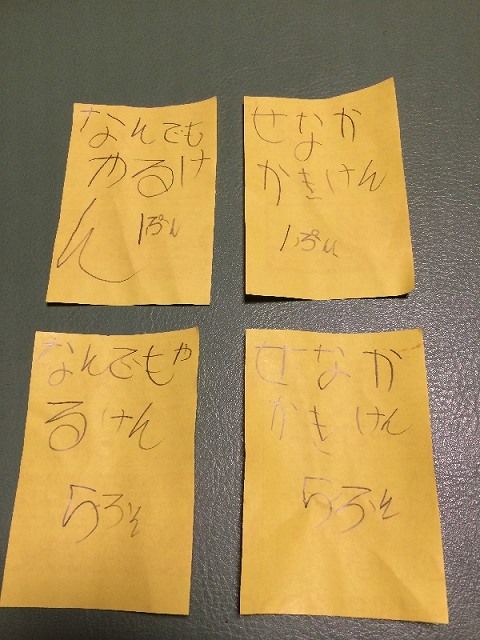 なんでも
やるけ
ん
1ぷん
せなか
かきけん
1ぷん
なんでもや
るけん
5ふん
せなか
かきけん
5ふん